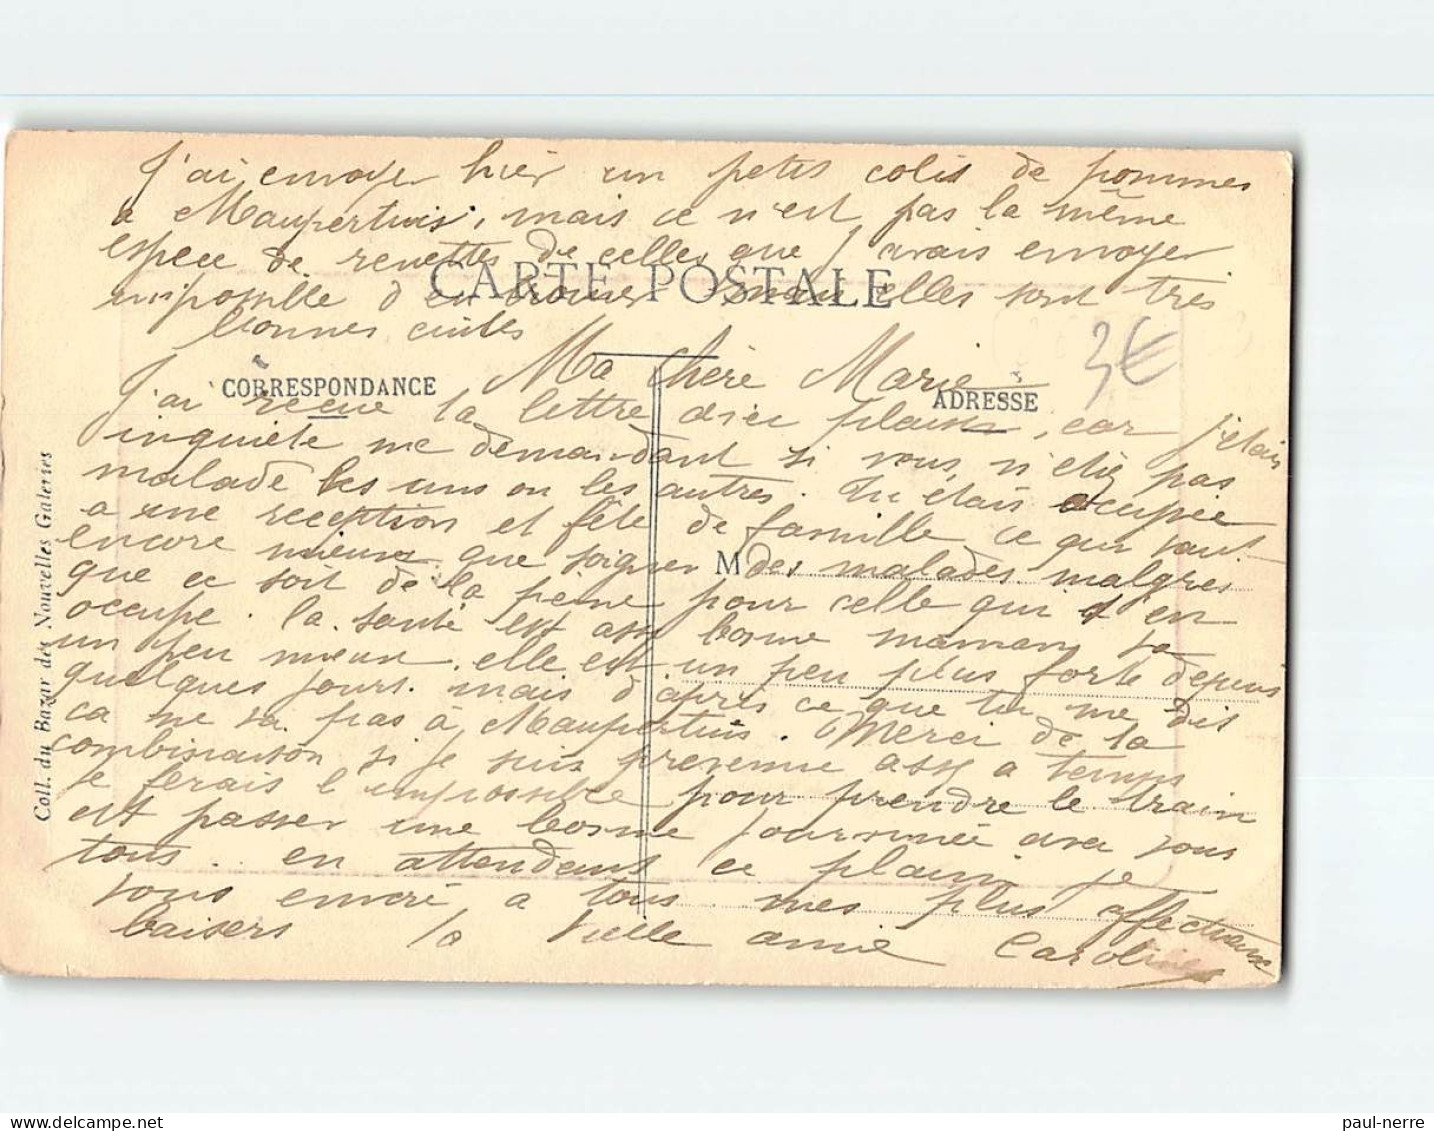 J'ai envoyer hier un petit colis de pommes
a Maupertuis, mais ce n'est pas la même
espece de renettes de celles que j'avais envoyer
impossible d'en trouver mais elles sont très
bonnes cuites
CARTE POSTALE
Ma chère Marie
3€
CORRESPONDANCE
ADRESSE
J'ai recue ta lettre avec plaisir, car j'étais
inquiéte me demandant si vous n'étiez pas
malade les uns ou les autres. Tu étais occupée
a une reception et fête de famille ce qui vaut
encore mieux que soigner des malades malgres
M
que ce soit de la peine pour celle qui s'en
occupe. la santé est assez bonne maman va
un peu mieux. elle est un peu plus forte depuis
quelques jours. mais d'après ce que tu me dis
ca ne va pas à Maupertuis. Merci de ta
combinaison si je suis prevenue assez a temps
je ferais l'impossible pour prendre le train
est passer une bonne journnée avec vous
tous. en attendant ce plaisir je
vous envoie a tous mes plus affectueux
baisers ta vielle amie Caroline
Coll. du Bazar des Nouvelles Galeries
paul-nerre